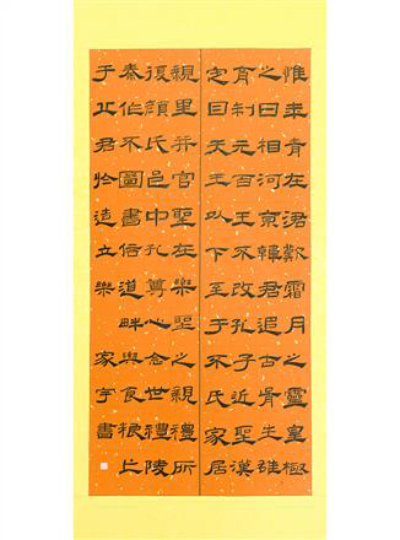 惟年青在涒歎霜月之靈皇極
之日相河京韓君追古胥生雄
育制元百王不改孔子近聖漢
定曰天王以下至于不氏家居
親里并官聖在樂聖之親禮所
復顏氏邑中孔尊心念世禮陵
秦作不圖書倍道畔與食粮亡
于丘君於造立樂 家宇書